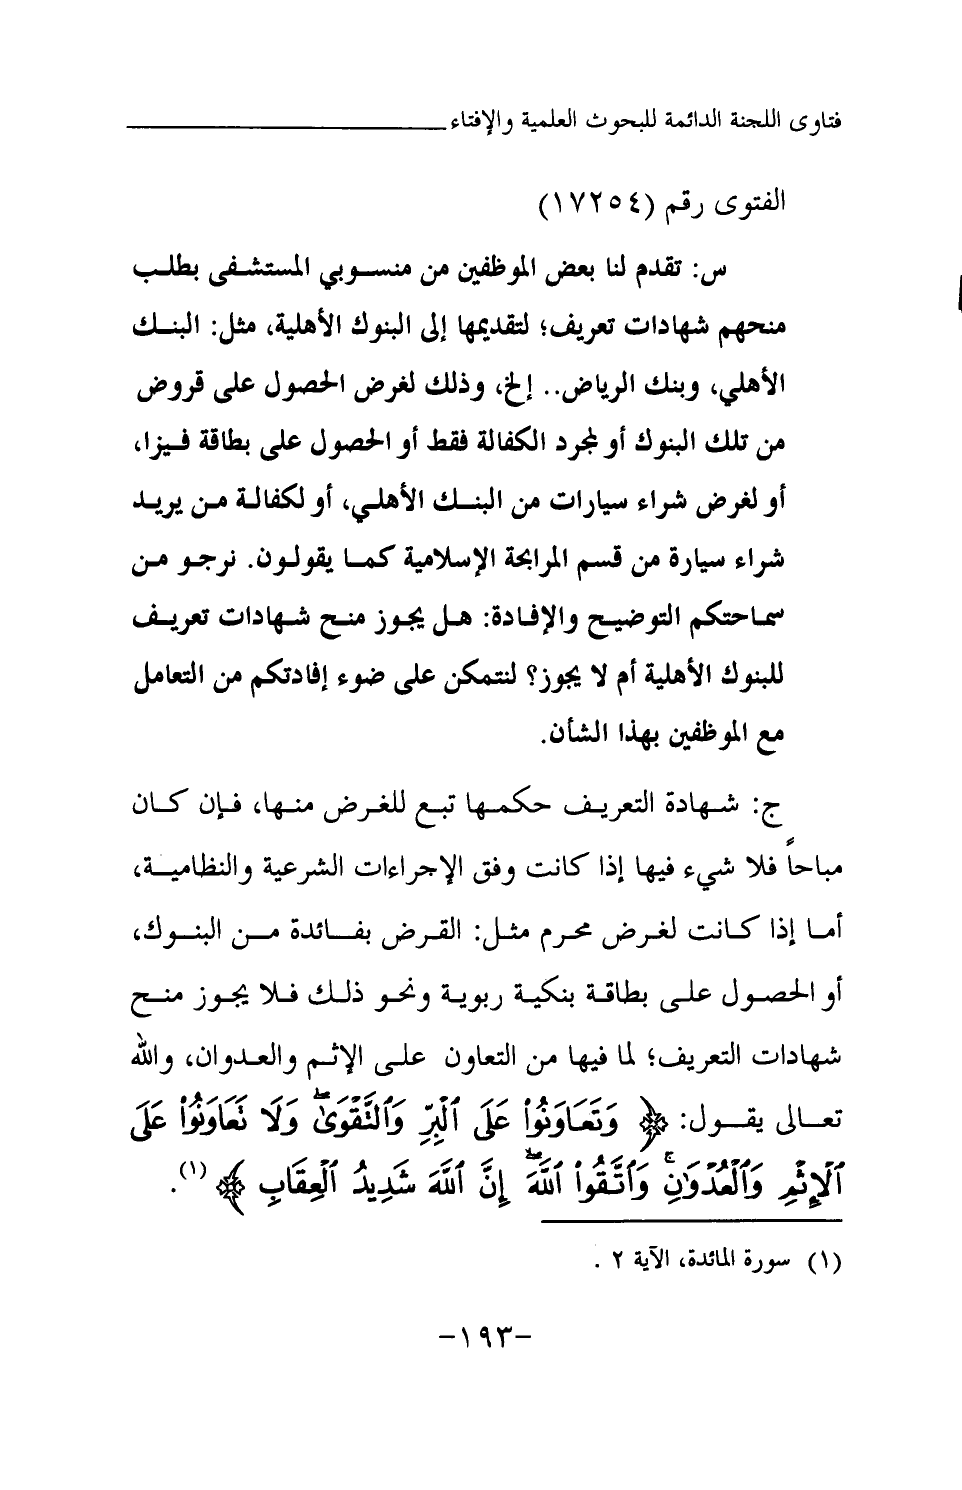 فتاوى اللجنة الدائمة للبحوث العلمية والإفتاء
الفتوى رقم (١٧٢٥٤)
س: تقدم لنا بعض الموظفين من منسوبي المستشفى بطلب
منحهم شهادات تعريف؛ لتقديمها إلى البنوك الأهلية، مثل: البنك
الأهلي، وبنك الرياض.. إلخ، وذلك لغرض الحصول على قروض
من تلك البنوك أو لمجرد الكفالة فقط أو الحصول على بطاقة فيزا،
أو لغرض شراء سيارات من البنك الأهلي، أو لكفالة من يريد
شراء سيارة من قسم المرابحة الإسلامية كما يقولون. نرجو من
سماحتكم التوضيح والإفادة: هل يجوز منح شهادات تعريف
للبنوك الأهلية أم لا يجوز؟ لنتمكن على ضوء إفادتكم من التعامل
مع الموظفين بهذا الشأن.
ج: شهادة التعريف حكمها تبع للغرض منها، فإن كان
مباحاً فلا شيء فيها إذا كانت وفق الإجراءات الشرعية والنظامية،
أما إذا كانت لغرض محرم مثل: القرض بفائدة من البنوك،
أو الحصول على بطاقة بنكية ربوية ونحو ذلك فلا يجوز منح
شهادات التعريف؛ لما فيها من التعاون على الإثم والعدوان، والله
تعالى يقول: ﴿ وَتَعَاوَنُوا۟ عَلَى ٱلْبِرِّ وَٱلتَّقْوَىٰۖ وَلَا تَعَاوَنُوا۟ عَلَى
ٱلْإِثْمِ وَٱلْعُدْوَٰنِۚ وَٱتَّقُوا۟ ٱللَّهَۖ إِنَّ ٱللَّهَ شَدِيدُ ٱلْعِقَابِ ﴾ (١).
(١) سورة المائدة، الآية ٢ .
-١٩٣-